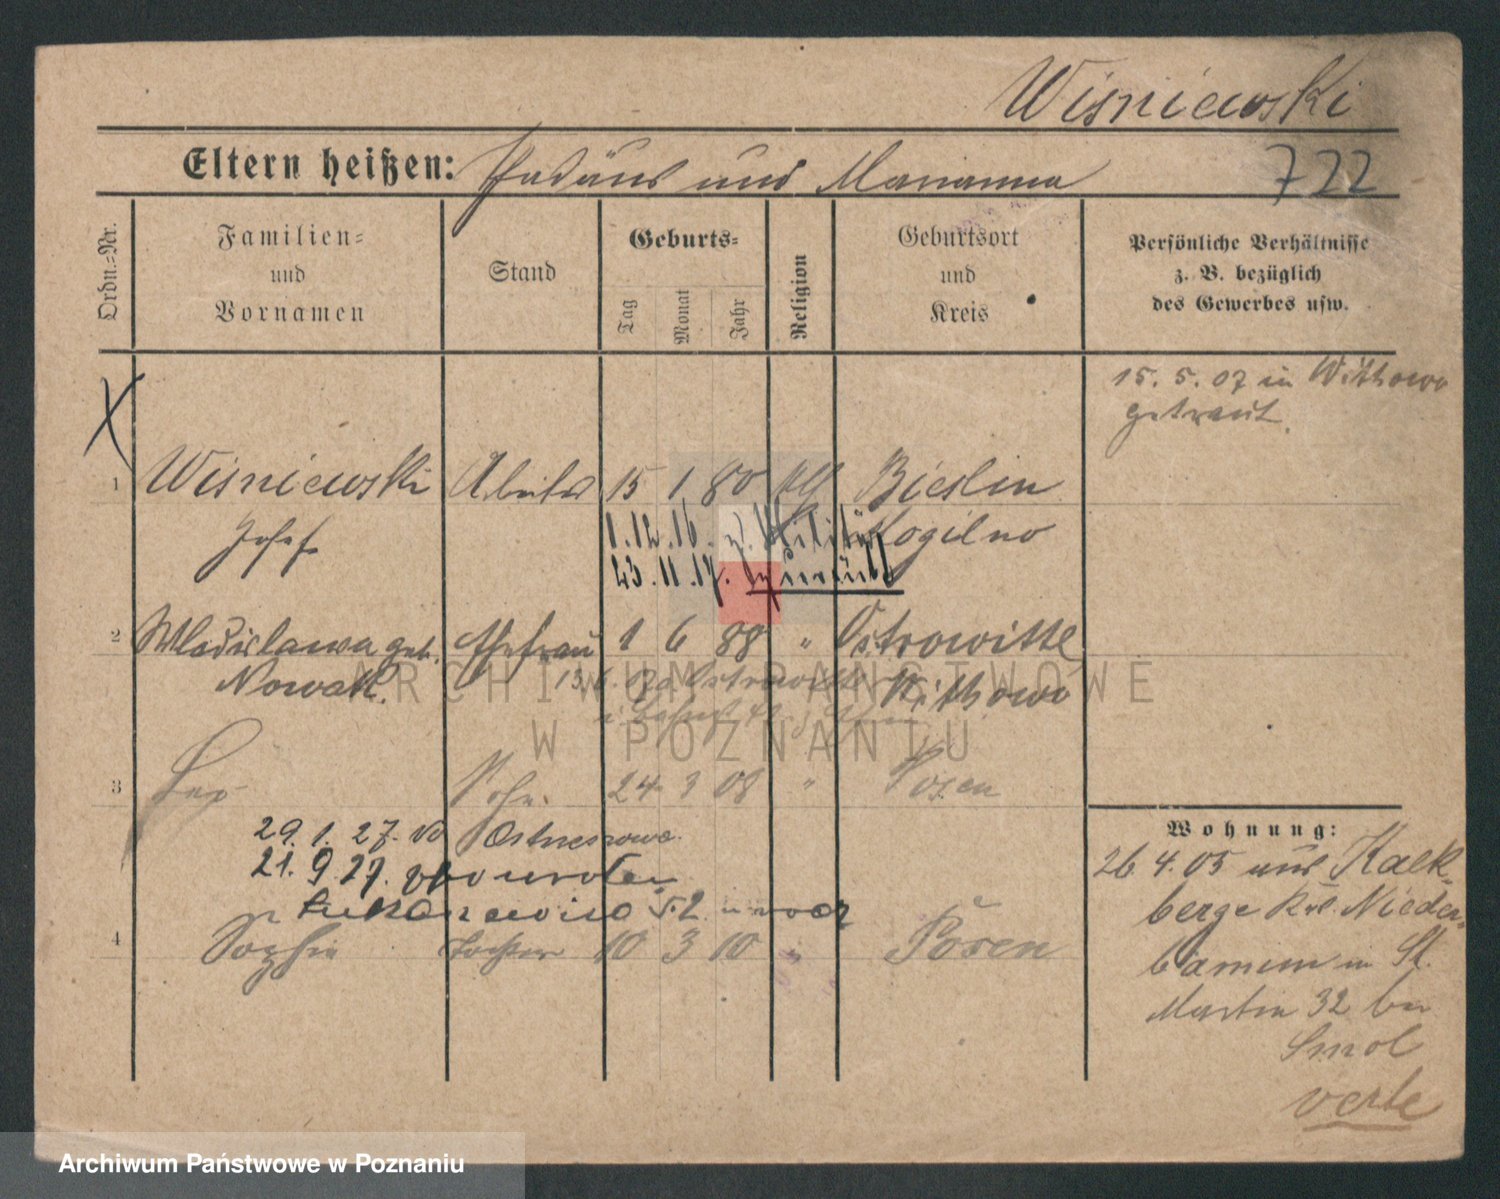 Wiśniewski
Eltern heißen: Thadäus und Marianna 722
Ordn.=Nr.
Familien=
und
Vornamen
Stand
Geburts=
Tag
Monat
Jahr
Religion
Geburtsort
und
Kreis
Persönliche Verhältnisse
z. B. bezüglich
des Gewerbes usw.
15. 5. 07 in Witkowo
getraut.
1 Wiśniewski Arbeiter 15 1 80 Bieslin
Josef Mogilno
1.12.16. z. Militär
23.11.17. zurück
2 Wladislawa geb. Ehefrau 1 6 88 " Ostrowitte
Nowak. Witkowo
3 Sohn. 24 3 08 " Posen
29. 1. 27.
21. 9 27.
4 Sophie Tochter 10 3 10 " Posen
Wohnung:
26. 4. 05 aus Kalk-
berge Krs. Nieder-
barnim in St.
Martin 32 bei
Smol
verte
ARCHIWUM PAŃSTWOWE
W POZNANIU
Archiwum Państwowe w Poznaniu